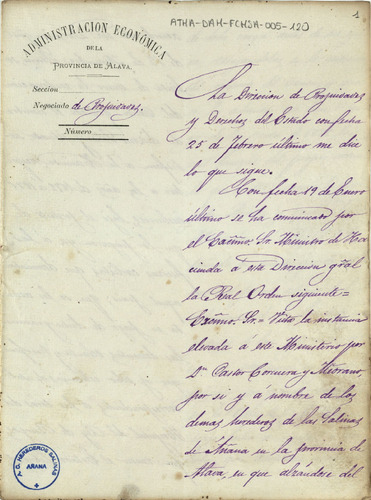 ATHA-DAH-FCHSA-005-120
1
ADMINISTRACION ECONÓMICA
DE LA
PROVINCIA DE ALAVA.
Seccion
Negociado de Propiedades
Número
La Direccion de Propiedades
y Derechos del Estado con fecha
25 de Febrero último me dice
lo que sigue.
Con fecha 19 de Enero
último se ha comunicado por
el Excmo. Sr. Ministro de Ha-
cienda a esta Direccion gral
la Real Orden siguiente=
Excmo. Sr.= Vista la instancia
elevada a este Ministerio por
Dn Pastor Corcuera y Medrano
por si y á nombre de los
demas herederos de las Salinas
de Añana en la provincia de
Alava, en que alzándose del
A.G. HEREDEROS SALINAS
AÑANA